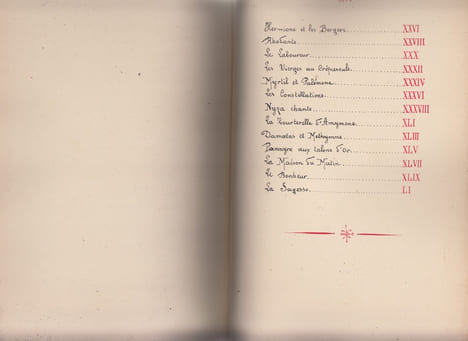 Hermione et les Bergers XXVI
Rhodante XXVIII
Le Laboureur XXX
Les Vierges au Crépuscule XXXII
Myrtil et Palémone XXXIV
Les Constellations XXXVI
Nyza chante XXXVIII
La Tourterelle d'Amymone XLI
Damœtas et Methymne XLIII
Pannyre aux talons d'Or XLV
La Maison du Matin XLVII
Le Bonheur XLIX
La Sagesse LI